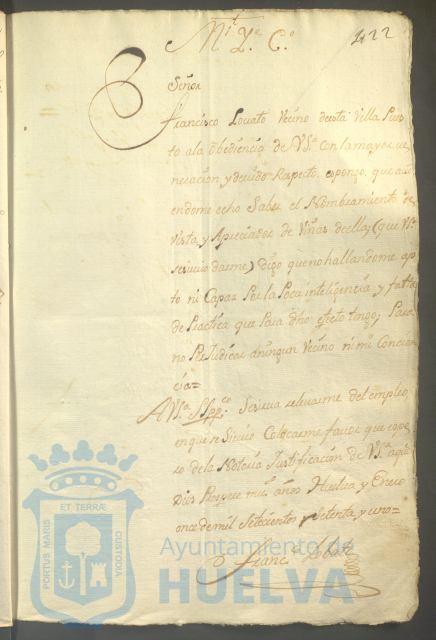 Mᵗ Yᵉ Cº
422
Señor
Francisco Lovato Vecino desta Villa Pues
to ala obediencia de VSª con lamayor ve
neracion, y devido Respecto, espongo, que avi
endome echo Saber el Nombramiento de
Vista, y Apreciador de Viñas de ella, (que VSª
se sirvio darme) digo que no hallandome ap
to ni Capaz Por la Poca inteligencia, y falta
de Practica que Para dho efecto tengo, Para
no Perjudicar aningun Vecino ni mi Concien
cia=
AVSª Suppᶜᵒ Se sirva relevarme del empleo,
en que se Sirvio Colocarme favor que espe
ro de la Notoria Justificacion de VSª a qn
Dios Prospere mus años Huelva y Enero
once de mil Setecientos y setenta, y uno=
Francᵒ Lobato
PORTUS MARIS ET TERRÆ CUSTODIA
Ayuntamiento de
HUELVA